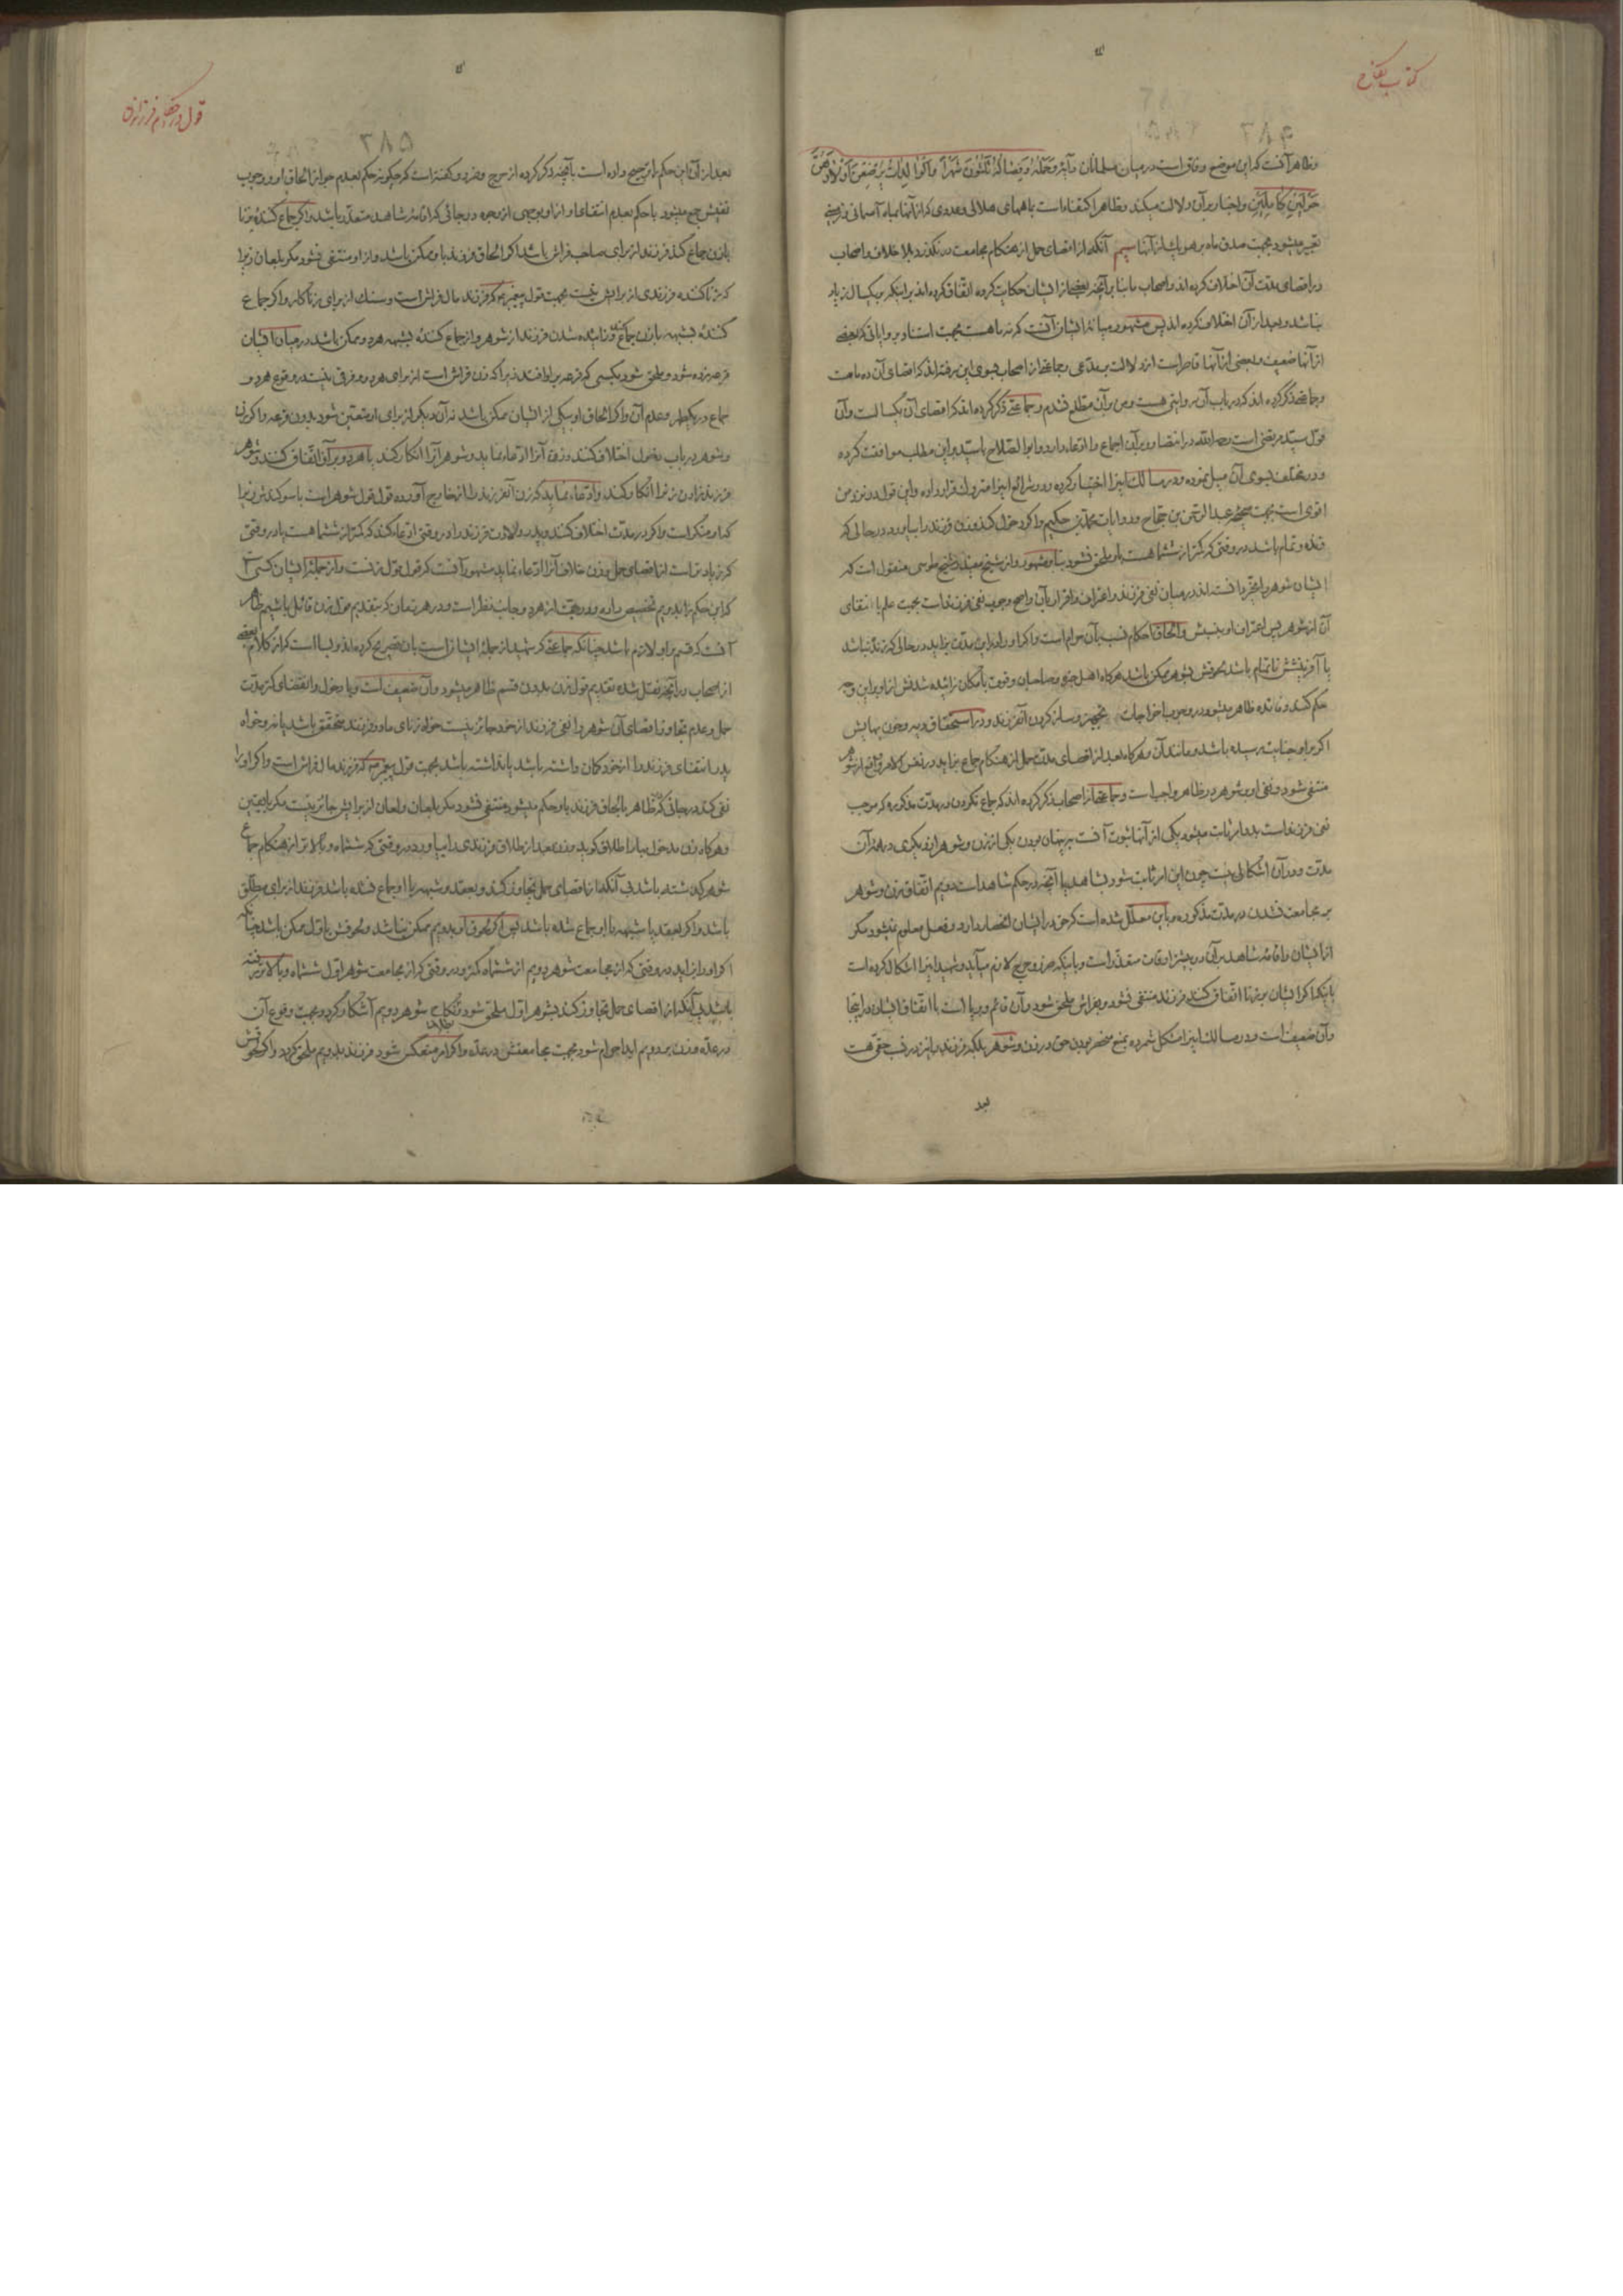 کتاب نکاح
وظاهر آنست که این موضع وفاق است در میان مسلمانان وآیهٔ وَحَمْلُهُ وَفِصَالُهُ ثَلٰثُونَ شَهْرًا وَالْوَالِدَاتُ يُرْضِعْنَ أَوْلَادَهُنَّ
حَوْلَيْنِ كَامِلَيْنِ واخبار بر آن دلالت میکند وظاهر اکتفاء است بماههای هلالی وعددی که از آنها بماه آسمانی
تعبیر میشود بجهت صدق ماه بر هر یک از آنها سیم آنکه از اقصای حمل از هنگام مجامعت در نگذرد بلا خلاف واصحاب
در اقصای مدت آن اختلاف کرده اند واصحاب ما بنا بر آنچه بعضی از ایشان حکایت کرده اتفاق کرده اند بر اینکه بر یکسال زیاد
نباشد وبعد از آن اختلاف کرده اند پس مشهور میانهٔ ایشان آنست که نه ماهست بجهت استناد بروایاتی که بعضی
از آنها ضعیف وبعضی از آنها قاصر است از دلالت بر مدّعی وجماعتی از اصحاب بسوی این رفته اند که اقصای آن ده ماهست
وجماعتی ذکر کرده اند که در باب آن روایتی هست ومن بر آن مطلع نشدم وجماعتی ذکر کرده اند که اقصای آن یکسالست وآن
قول سید مرتضی است رضی الله در انتصار وبر آن اجماع را ادعاء دارد وابوالصلاح با سید بر این مطلب موافقت کرده
ودر مختلف بسوی آن میل نموده ودر مسالک اینرا اختیار کرده ودر شرایع اینرا متروک قرار داده واین قول در نزد من
اقوی است بجهت صحیحهٔ عبدالرحمن بن حجاج وروایات محمد بن حکیم واگر دخول کند وزن فرزند را بیاورد در حالی که
زنده وتمام باشد در وقتی که کمتر از ششماهست باو ملحق نشود بنا بر مشهور واز شیخ مفید وشیخ طوسی منقول است که
ایشان شوهر را مخیر دانسته اند در میان نفی فرزند واعتراف واقرار بآن واصح وجوب نفی فرزند است بجهت علم بانتفای
آن از شوهر پس اعتراف او بنسبش والحاق احکام نسب بآن حرام است واگر او را در این مدت بزاید در حالی که زنده نباشد
حکم کنند وفائده ظاهر میشود در وجوب اخراجات تجهیز وساز کردن آن فرزند ودر استحقاق دیه چون بهایش
اگر بر او جنایت رسیده باشد ومانند آن وهرگاه بعد از اقصای مدت حمل از هنگام جماع بزاید در نفس الامر واقع از شوهر
منتفی شود ونفی او بر شوهر در ظاهر واجب است وجماعتی از اصحاب ذکر کرده اند که جماع نکردن در مدت مذکوره که موجب
نفی فرزند است بدو امر ثابت میشود یکی از آنها ثبوت آنست به پنهان بودن یکی از زن وشوهر از دیگری در همهٔ آن
مدت ودر آن اشکالی نیست چون این امر ثابت شود بشاهد یا آنچه در حکم شاهد است دویم اتفاق زن وشوهر
بر مجامعت نشدن در مدت مذکوره وباین معلل شده است که حق در ایشان انحصار دارد وفعل معلوم نمیشود مگر
از ایشان واقامهٔ شاهد بر آن در بیشتر اوقات متعذر است وباینکه ضرر وحرج لازم میآید وشهید اینرا اشکال کرده است
باینکه اگر ایشان بر زنا اتفاق کنند فرزند منتفی نشود وبفراش ملحق شود وآن قائم وبرپا است با اتفاق ایشان در اینجا
وآن ضعیف است ودر مسالک اینرا مشکل شمرده بمنع منحصر بودن حق در زن وشوهر بلکه فرزند را نیز در نسب حقی هست
بعد
قول در احکام فرزندان
۳۸۵
بعد از آن این حکم را ترجیح داده است بآنچه ذکر کرده از حرج وضرر وگفته است که چگونه حکم بعدم جواز الحاق او ووجوب
نفیش جمع میشود با حکم بعدم انتفای او از او بوجهی از وجوه در جائی که اقامهٔ شاهد متعذر باشد واگر جماع کنندهٔ بزنا
با زن جماع کند فرزند از برای صاحب فراش باشد اگر الحاق فرزند باو ممکن باشد واز او منتفی نشود مگر بلعان زیرا
که زنا کننده فرزندی از برایش نیست بجهت قول پیغمبر ص که فرزند مال فراش است وسنگ از برای زناکار واگر جماع
کنندهٔ بشبهه با زن جماع کند وزائیده شدن فرزند از شوهر واز جماع کنندهٔ بشبهه هر دو ممکن باشد در میان ایشان
قرعه زده شود وملحق شود بکسی که قرعه بر او افتد زیرا که زن فراش است از برای هر دو وفرقی نیست در وقوع هر دو
جماع در یکطهر وعدم آن واگر الحاق او بیکی از ایشان ممکن باشد نه آن دیگر از برای او متعین شود بدون قرعه واگر زن
وشوهر در باب دخول اختلاف کنند وزن آنرا ادعاء نماید وشوهر آنرا انکار کند یا هر دو بر آن اتفاق کنند وشوهر
فرزند زادن زن را انکار کند وادعاء نماید که زن آن فرزند را از خارج آورده قول قول شوهر است با سوگندش زیرا
که او منکر است واگر در مدت اختلاف کنند وپدر ولادت فرزند را در وقتی ادعاء کند که کمتر از ششماهست یا در وقتی
که زیادتر است از اقصای حمل وزن خلاف آنرا ادعاء نماید مشهور آنست که قول قول زنست واز جملهٔ ایشان کسی است
که این حکم را بدویم تخصیص داده ودر هر دو جای نظر است ودر هر زمان که بتقدیم قول زن قائل باشیم ظاهر
آنست که قسم بر او لازم باشد چنانکه جماعتی که شهید از جملهٔ ایشان است بآن تصریح کرده اند وبسا است که از کلام بعضی
از اصحاب در آنچه نقل شده تقدیم قول زن بدون قسم ظاهر میشود وآن ضعیف است وبا دخول وانقضای کمتر مدت
حمل وعدم تجاوز اقصای آن شوهر را نفی فرزند از خود جائز نیست خواه زنای مادر فرزند متحقق باشد یا نه وخواه
پدر انتفای فرزند را از خود گمان داشته باشد یا نداشته باشد بجهت قول پیغمبر ص که فرزند مال فراش است واگر او را
نفی کند در جائی که ظاهر بالحاق فرزند باو حکم میشود منتفی نشود مگر بلعان ولعان از برایش جائز نیست مگر با یقین
وهرگاه زن مدخول بها را طلاق گوید وزن بعد از طلاق فرزندی را بیاورد در وقتی که ششماه وبالاتر از هنگام جماع
شوهر گذشته باشد بی آنکه از اقصای حمل تجاوز کند وبعقد وشبهه با او جماع نشده باشد فرزند از برای مطلق
باشد واگر بعقد یا شبهه با او جماع شده باشد پس اگر لحوق او بدویم ممکن نباشد ولحوقش باول ممکن باشد چنانکه
او را بزاید در وقتی که از مجامعت شوهر دویم از ششماه کمتر ودر وقتی که از مجامعت شوهر اول ششماه وبالاتر رفته
باشد بی آنکه از اقصای حمل تجاوز کند بشوهر اول ملحق شود وبطلان نکاح شوهر دویم آشکار گردد بجهت وقوع آن
در عده وزن بر دویم ابدا حرام شود بجهت مجامعتش در عده واگر امر منعکس شود فرزند بدویم ملحق گردد واگر لحوقش